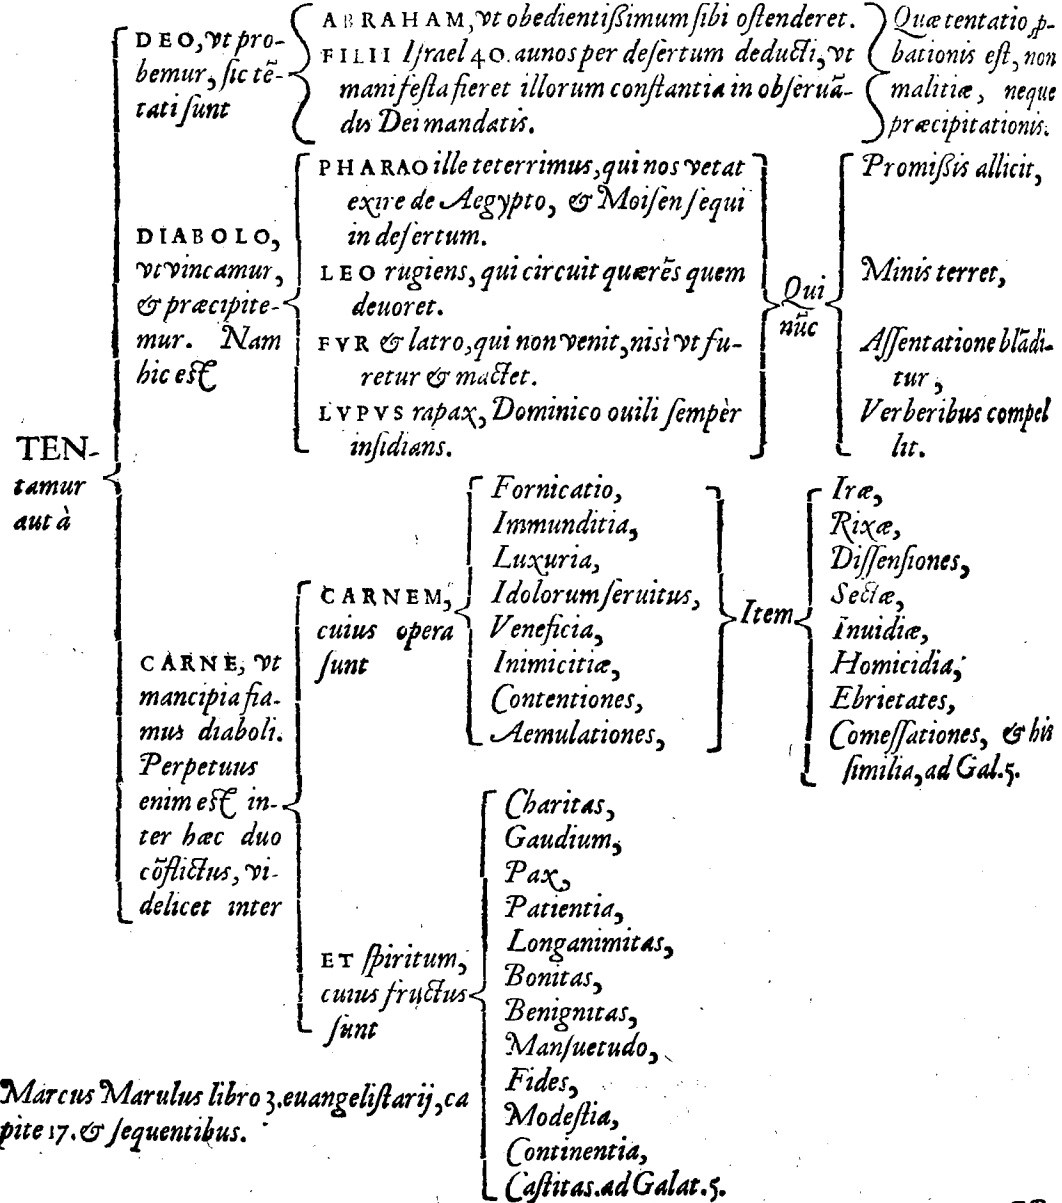 TEN-
tamur
aut à
DEO, vt pro-
bemur, sic tẽ-
tati sunt
ABRAHAM, vt obedientißimum sibi ostenderet.
FILII Israel 40. annos per desertum deducti, vt
manifesta fieret illorum constantia in obseruã-
dis Dei mandatis.
Quæ tentatio ꝓ-
bationis est, non
malitiæ, neque
præcipitationis.
DIABOLO,
vt vincamur,
& præcipite-
mur. Nam
hic est
PHARAO ille teterrimus, qui nos vetat
exire de Aegypto, & Moisen sequi
in desertum.
LEO rugiens, qui circuit quærẽs quem
deuoret.
FVR & latro, qui non venit, nisì vt fu-
retur & mactet.
LVPVS rapax, Dominico ouili sempèr
insidians.
Qui
nũc
Promißis allicit,
Minis terret,
Assentatione blãdi-
tur,
Verberibus compel
lit.
CARNE, vt
mancipia fia-
mus diaboli.
Perpetuus
enim est in-
ter hæc duo
cõflictus, vi-
delicet inter
CARNEM,
cuius opera
sunt
Fornicatio,
Immunditia,
Luxuria,
Idolorum seruitus,
Veneficia,
Inimicitiæ,
Contentiones,
Aemulationes,
Item
Iræ,
Rixæ,
Dissensiones,
Sectæ,
Inuidiæ,
Homicidia,
Ebrietates,
Comessationes, & his
similia, ad Gal. 5.
ET spiritum,
cuius fructus
sunt
Charitas,
Gaudium,
Pax,
Patientia,
Longanimitas,
Bonitas,
Benignitas,
Mansuetudo,
Fides,
Modestia,
Continentia,
Castitas. ad Galat. 5.
Marcus Marulus libro 3. euangelistarij, ca
pite 17. & sequentibus.